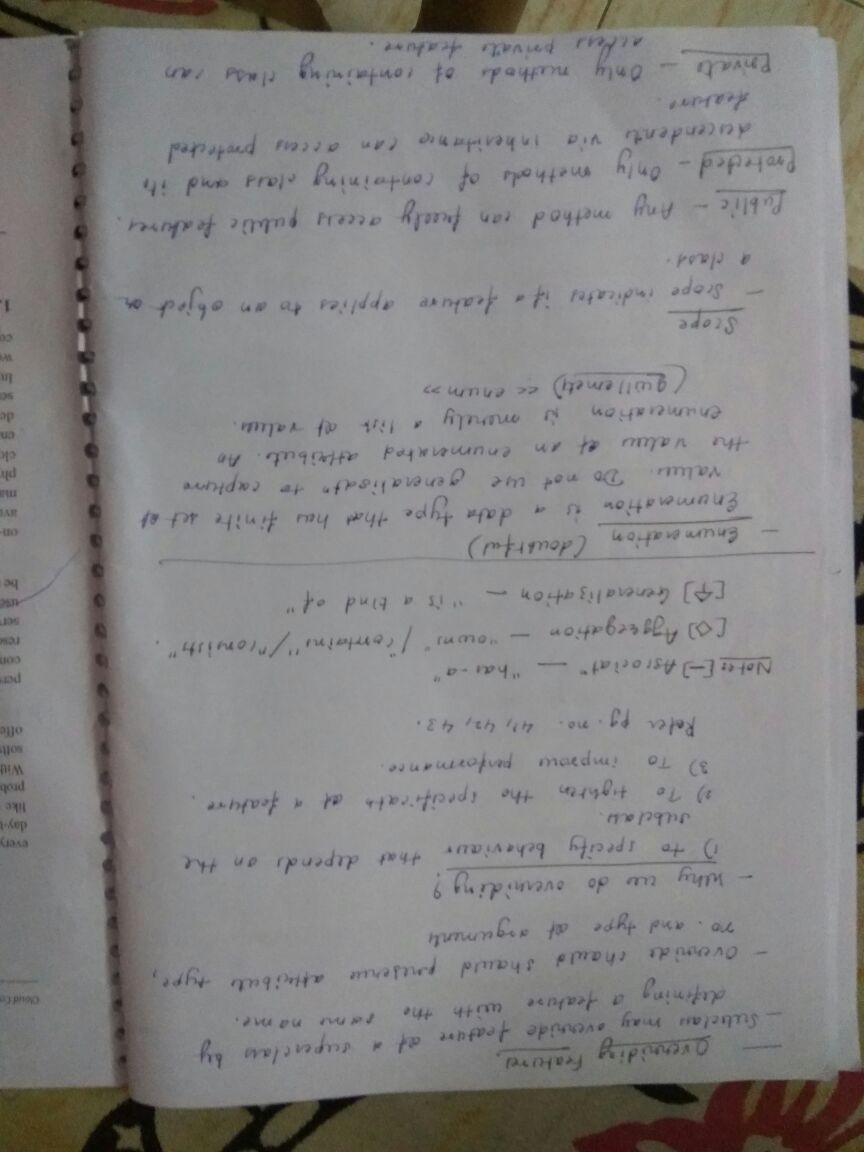 Overriding features
- Subclass may override feature of a superclass by
defining a feature with the same name.
- Override should preserve attribute type,
no. and type of arguments
- Why we do overriding?
1) To specify behaviour that depends on the
subclass.
2) To tighten the specificatn of a feature.
3) To improve performance.
Refer pg. no. 41, 42, 43.
Notes [—] Associatn — "has-a"
[◇] Aggregation — "owns" / "contains" / "consists".
[↑] Generalization — "is a kind of"
Enumeration (doubtful)
- Enumeration is a data type that has finite set of
values. Do not use generalisatn to capture
the values of an enumerated attribute. An
enumeration is merely a list of values.
(guillemets) << enum >>
Scope
- Scope indicates if a feature applies to an object or
a class.
Public - Any method can freely access public features.
Protected - Only methods of containing class and its
descendents via inheritance can access protected
feature.
Private - Only methods of containing class can
access private feature.
Cloud Co
every
day-t
like
prob
With
soft
offe
pers
con
reso
serv
use
be
on-
avai
ma
phy
clo
en
de
se
In
we
co
1.